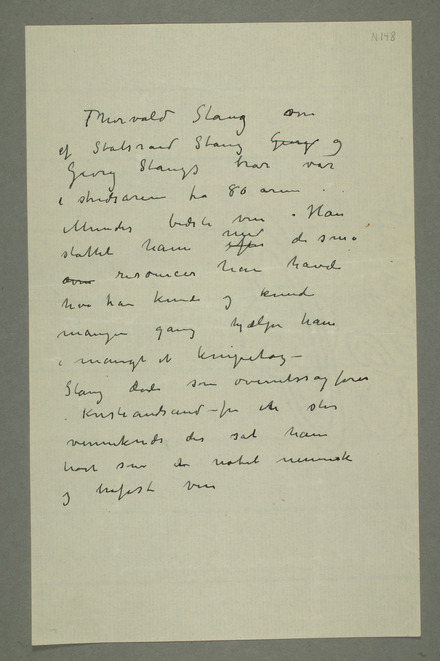 N 148
Thorvald Stang søn
af Statsraad Stang Georg og
Georg Stangs bror var
i studieaarene fra 80 aarene . .
Munchs bedste ven . Han
støttet ham med de smaa
resourcer han havde
hva han kunde og kunde
mangen gang hjælpe ham
i mangt et knipetag –
Stang døde som overretssagfører
i Kristiansand – fra en stor
vennekreds der sat ham
høit som det nobel menneske
og trofaste ven